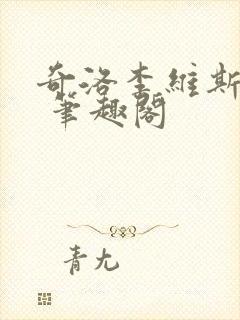 奇洛李維斯
筆趣閣
青尢